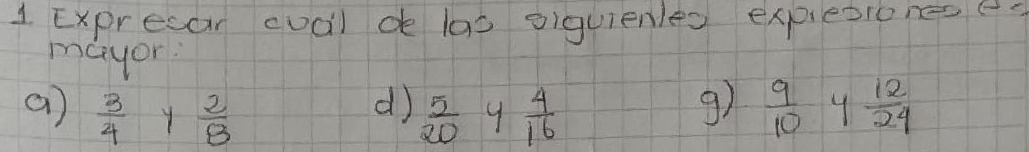 1. Expresar cuál de las siguientes expresiones es
mayor:
a) 3/4 y 2/8 d) 5/20 y 4/16 g) 9/10 y 12/24